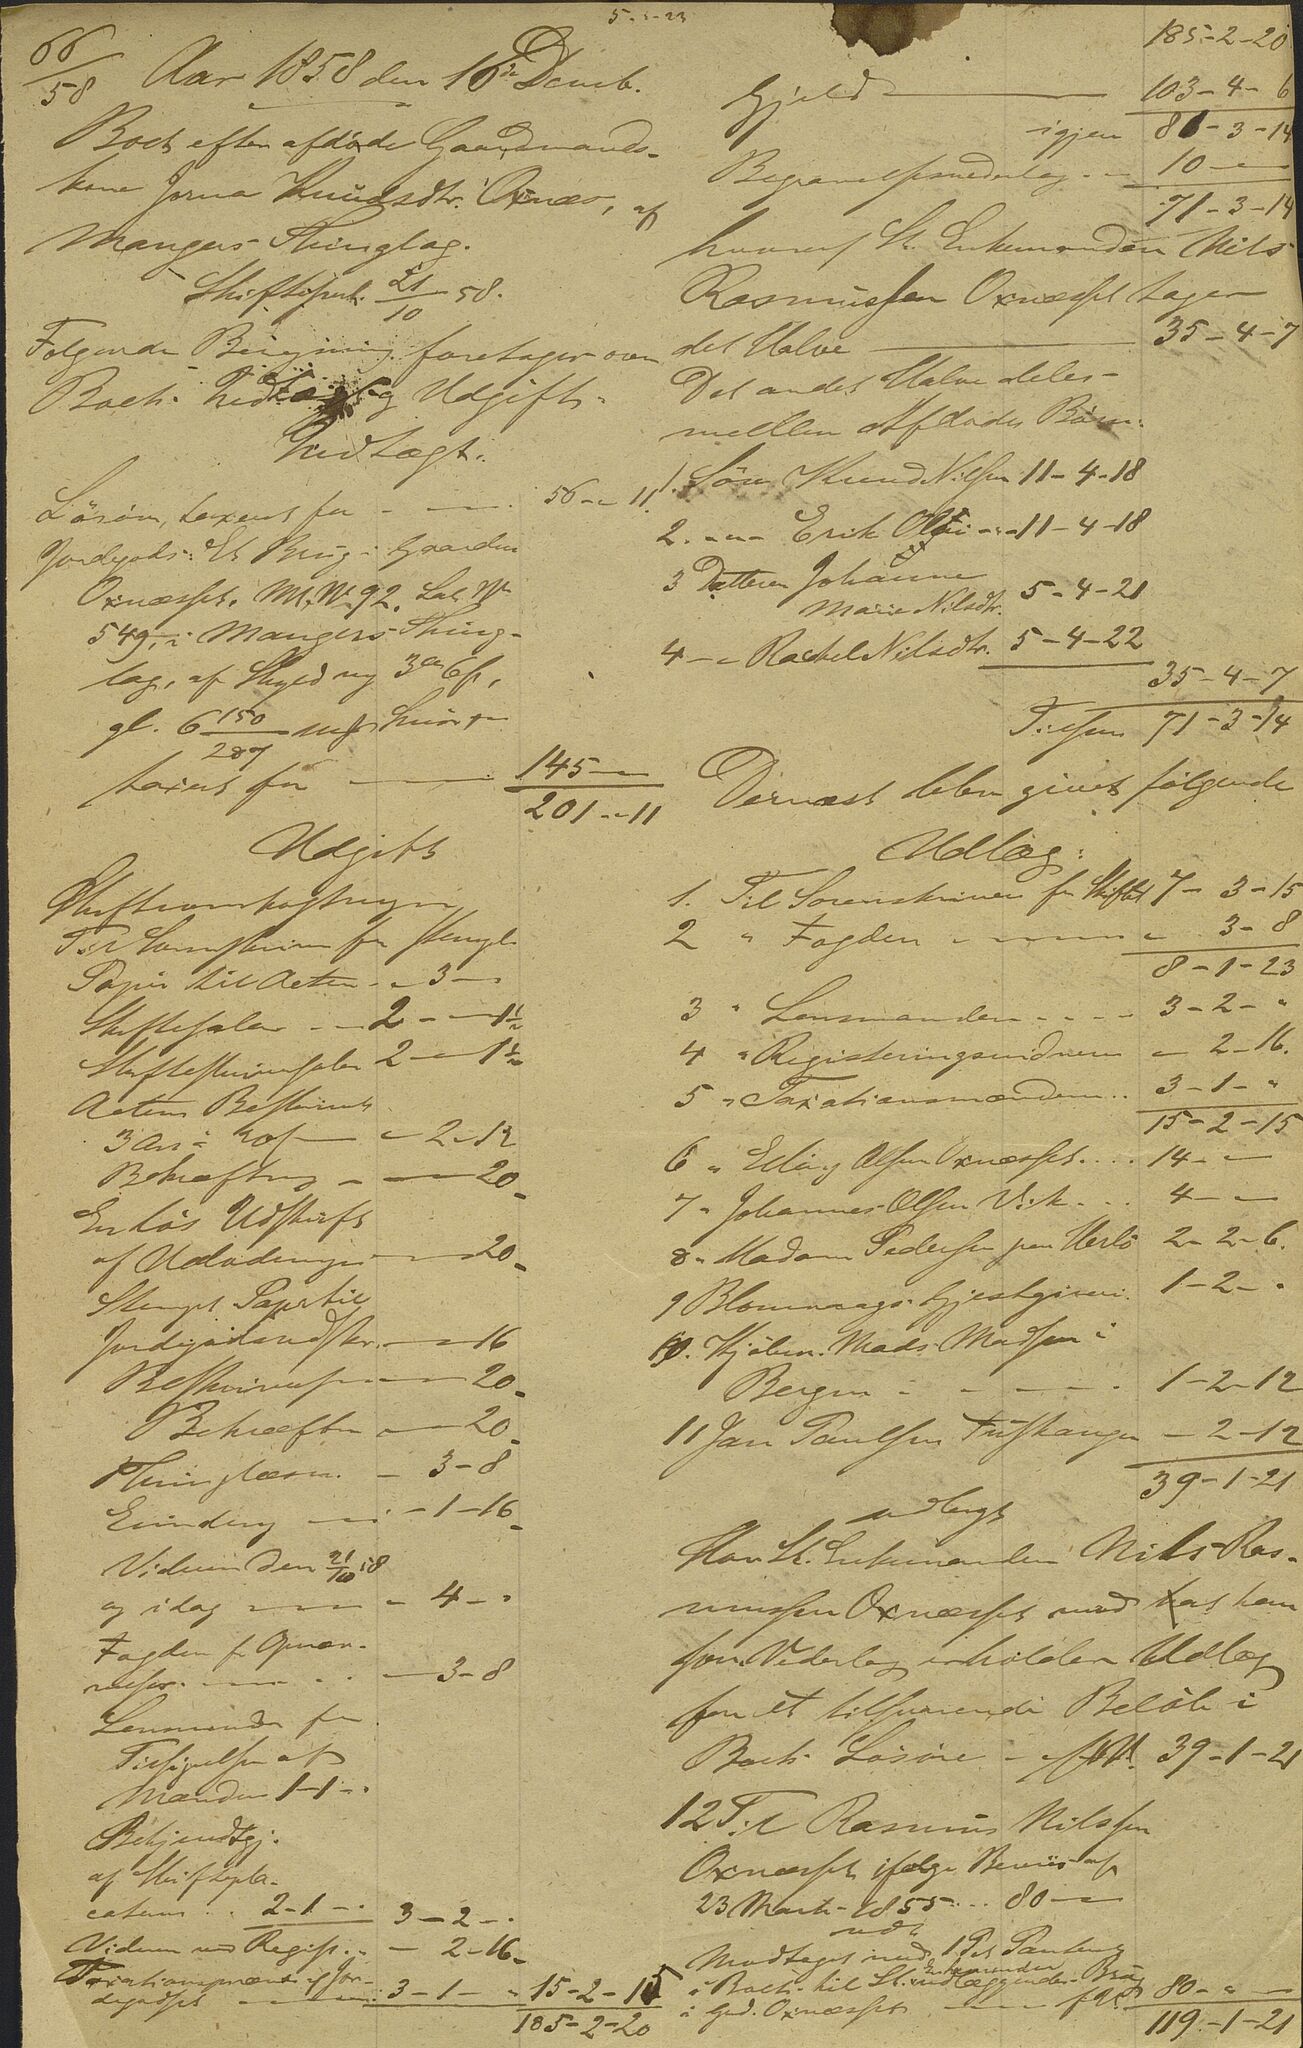 5-1-23
66/58 Aar 1858 den 16de Decemb.
Boet efter afdøde Gaardmands-
kone Jorina Knudsdtr. Oxnæs, af
Mangers Thinglag.
Skiftepub. 21/10 58.
Følgende Beregning foretages over
Boets Indtægt og Udgift.
Indtægt.
Løsøre, taxert for - - 56 - " 11
Jordegods: Et Brug i Gaarden
Oxnæsset, Mt. No 92, Løb. No
549, i Mangers Thing-
lag, af Skyld ny 3 Ort 6 s,
gl. 6 150/287
taxert for 145 - "
201 - " 11
Udgift
Skifteomkostninger
Til Sorenskriveren for Stempl.
Papir til Acten - " 3 -
Skiftesalær - - 2 - - 1½
Skifteskriversalær 2 - - 1½
Actens Beskrivels
3 Ark - 2 - 12
Bekræftning - - 20
En løs Udskrift
af Udlodningen - 20
Stempl. Papir til
Jordegodsudskr. - 16
Beskrivelsen - 20
Bekræften - 20
Thinglæsn. - 3 - 8
- 1 - 16
Vidnerne den 21/10 58
og idag - 4 - "
Fogden f.
- 3 - 8
Lensmanden for
Tilsigelse af
Mændene 1 - 1 - "
Bekjendtgj.
af Skiftepla-
caterne .. 2 - 1 - " 3 - 2 - "
Vidnerne ved Regist. - 2 - 16
Taxationsmænd. af Jor-
degodset 3 - 1 - " 15 - 2 - 15
185 - 2 - 20
185 - 2 - 20
Gjæld 103 - 4 - 6
igjen 81 - 3 - 14
Begravelsesvederlag - - 10 -
71 - 3 - 14
hvoraf St. Enkemanden Nils
Rasmussen Oxnæsset tager
det Halve 35 - 4 - 7
Det andet Halve deles
mellem Afdødes Børn:
1. Søn Knud Nilsen 11 - 4 - 18
2. - " - Erik Olai - " - 11 - 4 - 18
3 Datteren Johanne
Marie Nilsdtr. 5 - 4 - 21
4 - " Rachel Nilsdtr. 5 - 4 - 22
35 - 4 - 7
Tilsam 71 - 3 - 14
Dernæst blev givet følgende
Udlæg:
1. Til Sorenskriveren for Skiftet 7 - 3 - 15
2 " Fogden - 3 - 8
8 - 1 - 23
3 " Lensmanden - - - 3 - 2 - "
4 " Registeringsvidnerne - 2 - 16.
5 " Taxationsmændene .. 3 - 1 - "
15 - 2 - 15
6 " Elling Olsen Oxnæsset .... 14 - -
7 " Johannes Olsen Vik ... 4 - -
8 " Madam Pedersen paa Herlø 2 - 2 - 6.
9 Blomvaags Gjestgiveri 1 - 2 - "
10. Kjøbm. Mads Madsen i
Bergen - - - 1 - 2 - 12
11 Jan Paulsen Tufthangen - 2 - 12
39 - 1 - 21
udlagt
Hos St. Enkemanden Nils Ras-
mussen Oxnæsset mod at han
som Vederlag erholder Udlæg
for et tilsvarende Beløb i
Boets Løsøre 39 - 1 - 21
12 Til Rasmus Nilssen
Oxnæsset ifølge Beviis af
23 Marts 1855 ... 80 -
udl.
Modtaget med 1 Pts Panteret
Enkemanden
i Boets til St. udlæggende Brug
i Grd. Oxnæsset 80 - " -
119 - 1 - 21